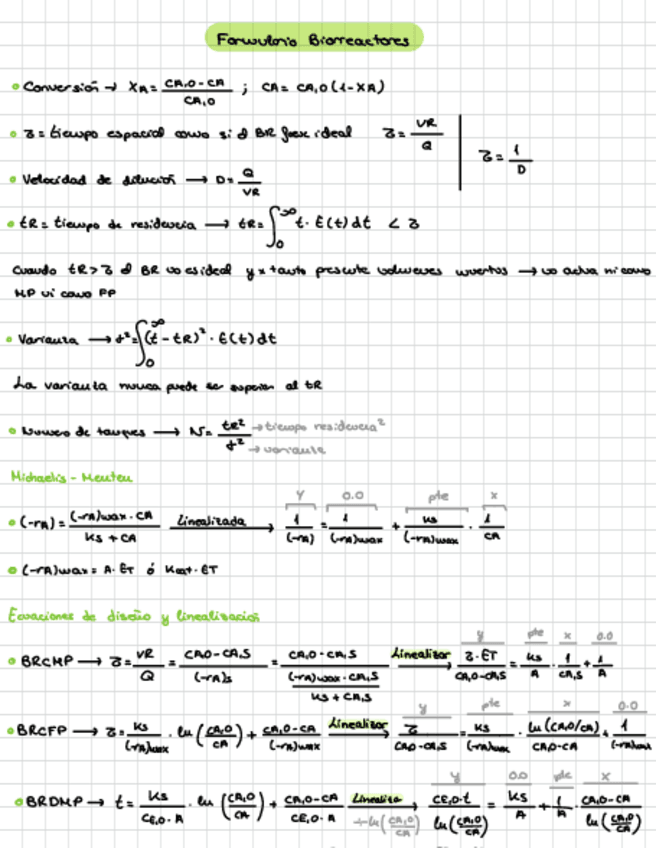 Formulario Biorreactores
• Conversión → XA = (CA,0 - CA) / CA,0 ; CA = CA,0 (1 - XA)
• τ = tiempo espacial como si el BR fuese ideal τ = VR / Q | τ = 1 / D
• Velocidad de dilución → D = Q / VR
• tR = tiempo de residencia → tR = ∫₀^∞ t · E(t) dt < τ
Cuando tR > τ el BR no es ideal y x tanto presente volúmenes muertos → no actua ni como
MP ni como FP
• Varianza → σ² = ∫₀^∞ (t - tR)² · E(t) dt
La varianza nunca puede ser superior al tR
• Número de tanques → N = tR² / σ² → tiempo residencia² → varianza
Michaelis - Menten
y 0.0 pte x
• (-rA) = (-rA)max · CA / (KS + CA) Linealizada → 1 / (-rA) = 1 / (-rA)max + KS / (-rA)max · 1 / CA
• (-rA)max = A · ET ó Kcat · ET
Ecuaciones de diseño y linealización
y pte x 0.0
• BRCMP → τ = VR / Q = (CA,0 - CA,S) / (-rA)s = (CA,0 - CA,S) / ((-rA)max · CA,S / (KS + CA,S)) Linealizar → τ · ET / (CA,0 - CA,S) = KS / A · 1 / CA,S + 1 / A
y pte x 0.0
• BRCFP → τ = KS / (-rA)max · ln (CA,0 / CA) + (CA,0 - CA) / (-rA)max Linealizar → τ / (CA,0 - CA,S) = KS / (-rA)max · ln (CA,0 / CA) / (CA,0 - CA) + 1 / (-rA)max
y 0.0 pte x
• BRDMP → t = KS / (CE,0 · A) · ln (CA,0 / CA) + (CA,0 - CA) / (CE,0 · A) Linealiza ÷ ln (CA,0 / CA) → CE,0 · t / ln (CA,0 / CA) = KS / A + 1 / A · (CA,0 - CA) / ln (CA,0 / CA)